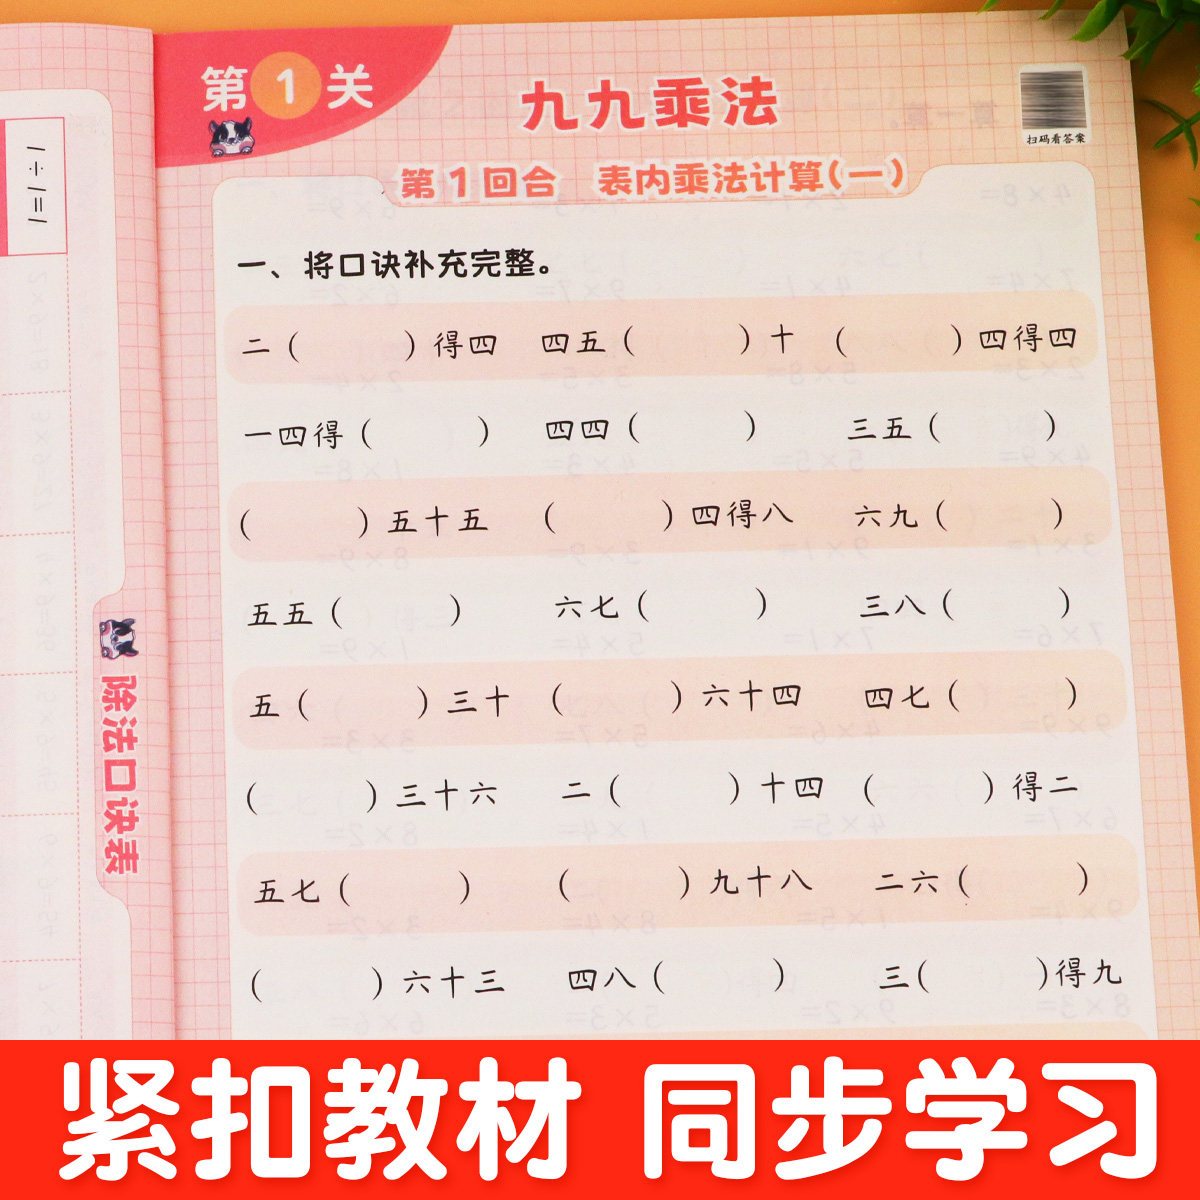 第1关
九九乘法
扫码看答案
第1回合 表内乘法计算(一)
一、将口诀补充完整。
二( )得四 四五( )十 ( )四得四
一四得( ) 四四( ) 三五( )
( )五十五 ( )四得八 六九( )
五五( ) 六七( ) 三八( )
五( )三十 ( )六十四 四七( )
( )三十六 二( )十四 ( )得二
五七( ) ( )九十八 二六( )
( )六十三 四八( ) 三( )得九
1÷1=1
除法口诀表
紧扣教材 同步学习